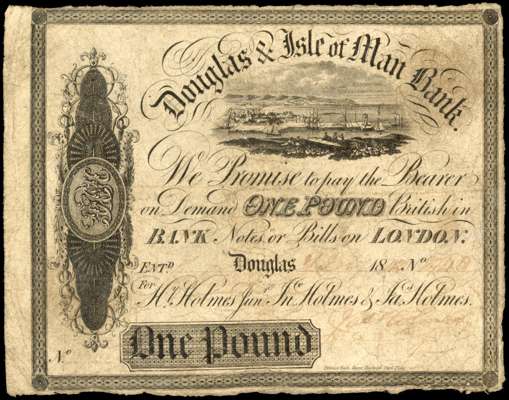 Douglas & Isle of Man Bank.
We Promise to pay the Bearer
on Demand ONE POUND British in
BANK Notes or Bills on LONDON.
ENTD Douglas 18 No
For Hy. Holmes Junr. Jno. Holmes & Jas. Holmes.
No
One Pound